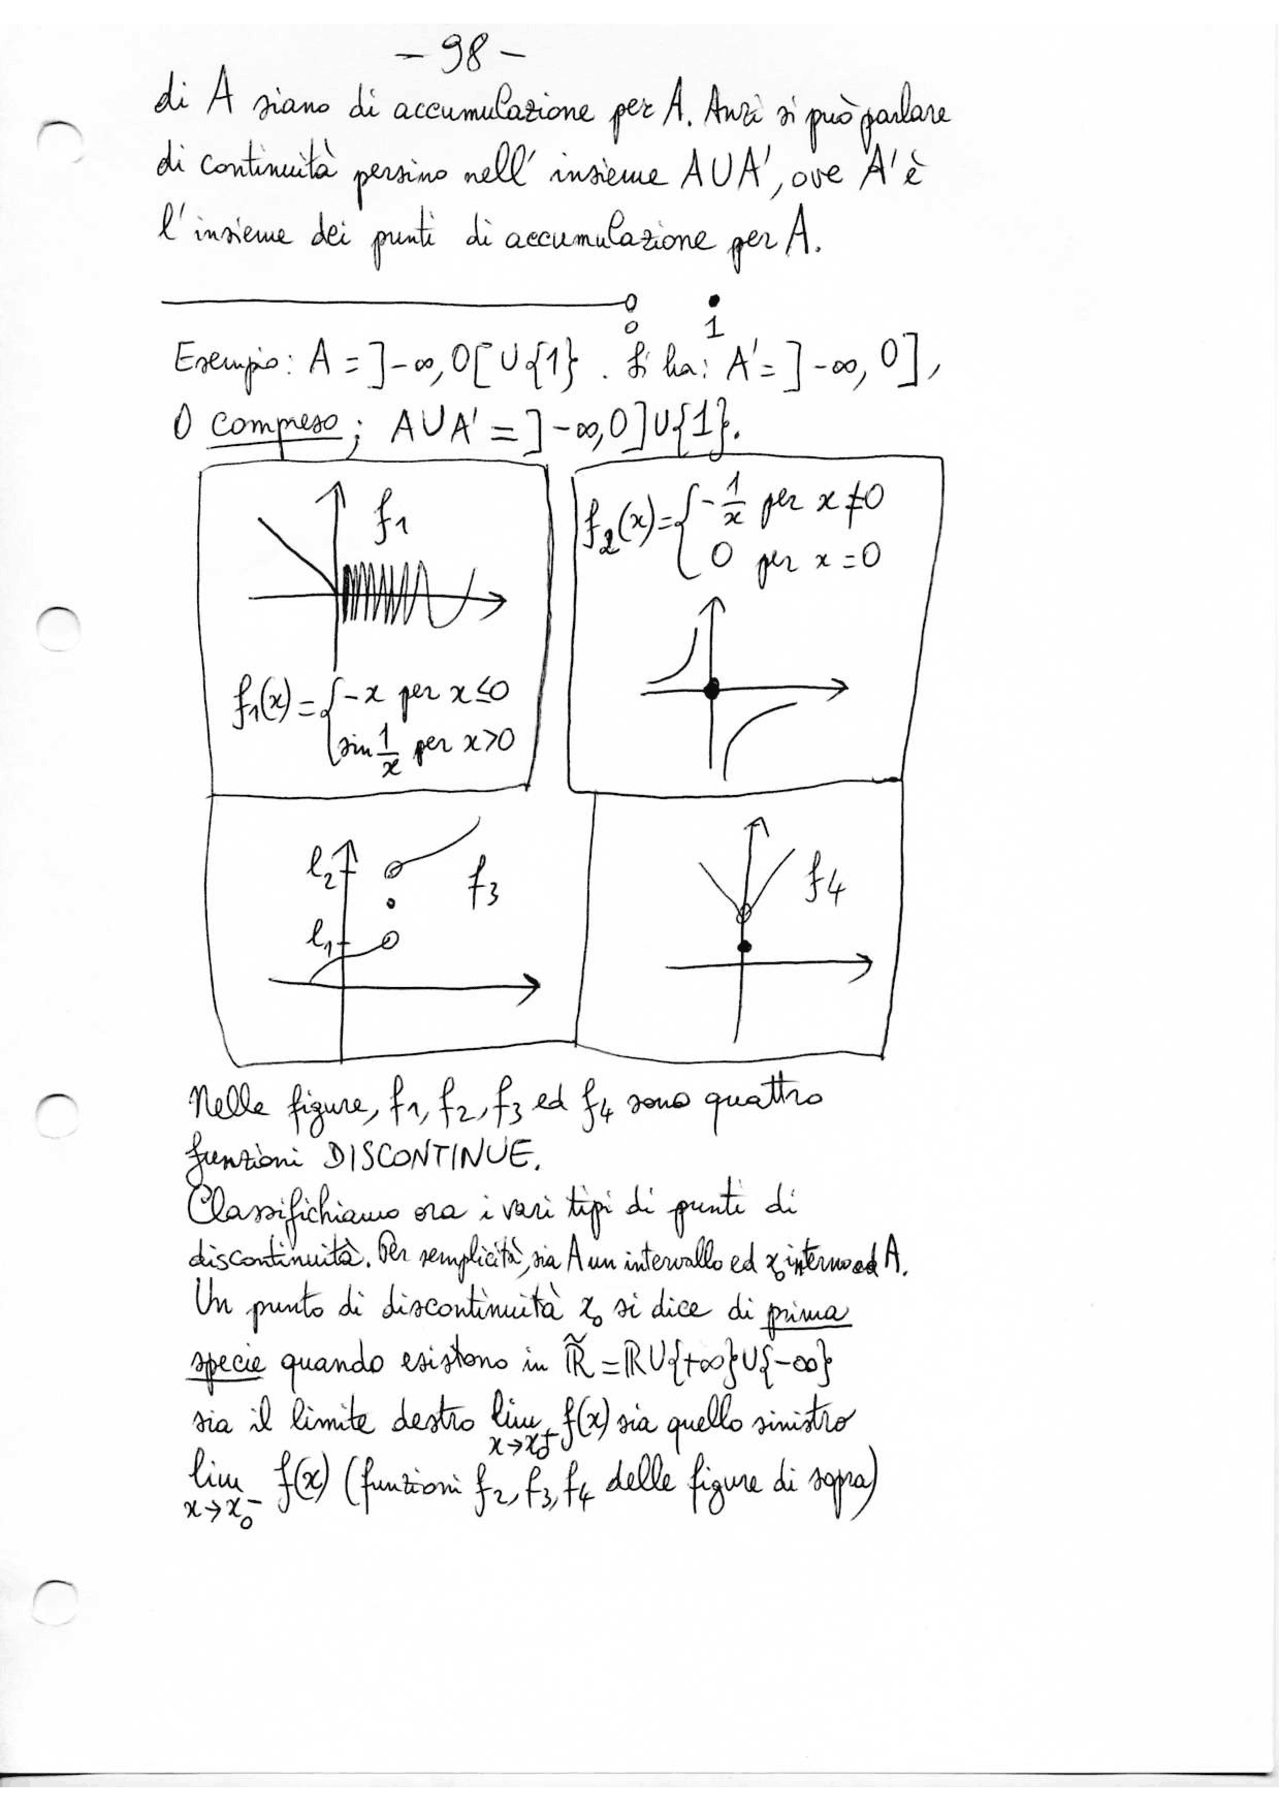 - 98 -
di A siano di accumulazione per A. Anzi si può parlare
di continuità persino nell' insieme A∪A', ove A' è
l'insieme dei punti di accumulazione per A.
0 1
Esempio: A = ]-∞, 0[ ∪ {1} . Si ha: A' = ]-∞, 0],
0 compreso; A∪A' = ]-∞,0]∪{1}.
f₁
f₁(x) = { -x per x≤0
sin 1/x per x>0
f₂(x) = { -1/x per x≠0
0 per x=0
l₂
f₃
l₁
f₄
Nelle figure, f₁, f₂, f₃ ed f₄ sono quattro
funzioni DISCONTINUE.
Classifichiamo ora i vari tipi di punti di
discontinuità. Per semplicità, sia A un intervallo ed x₀ interno ad A.
Un punto di discontinuità x₀ si dice di prima
specie quando esistono in R̃ = ℝ∪{+∞}∪{-∞}
sia il limite destro lim x→x₀⁺ f(x) sia quello sinistro
lim x→x₀⁻ f(x) (funzioni f₂, f₃, f₄ delle figure di sopra)